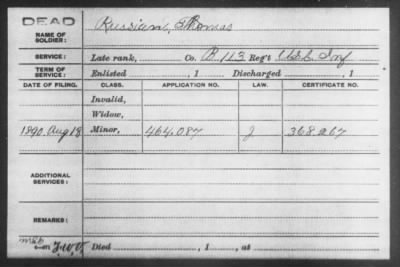 DEAD
NAME OF SOLDIER: Russian, Thomas
SERVICE: Late rank, Co. B. 113 Reg't U.S.C. Inf
TERM OF SERVICE: Enlisted , 1 Discharged , 1
DATE OF FILING. CLASS. APPLICATION NO. LAW. CERTIFICATE NO.
Invalid,
Widow,
1890, Aug 18 Minor, 464.087 J 368.267
ADDITIONAL SERVICES:
REMARKS:
Died , 1 , at